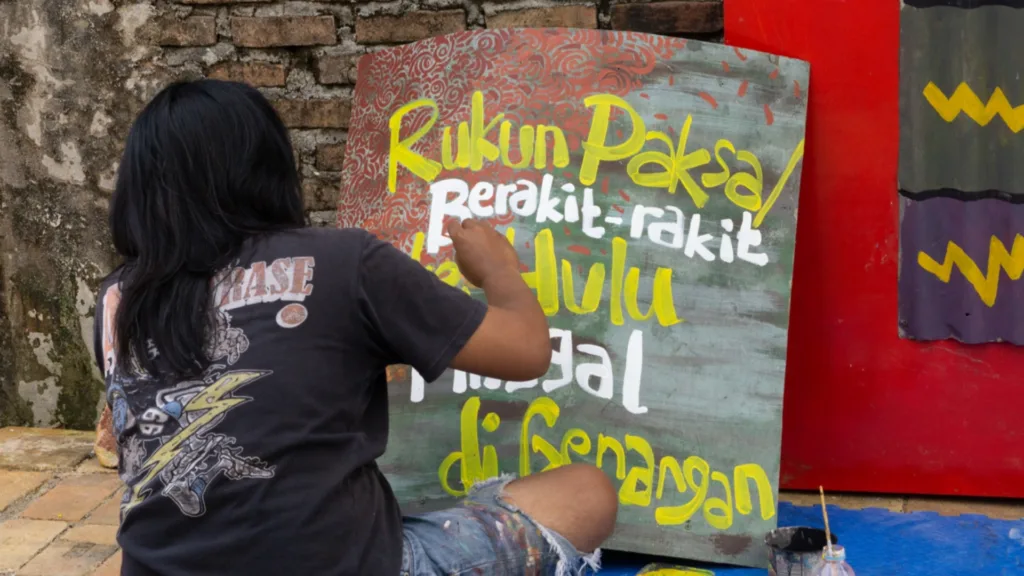 Rukun Paksa/
Berakit-rakit
hulu
di Genangan
RASE